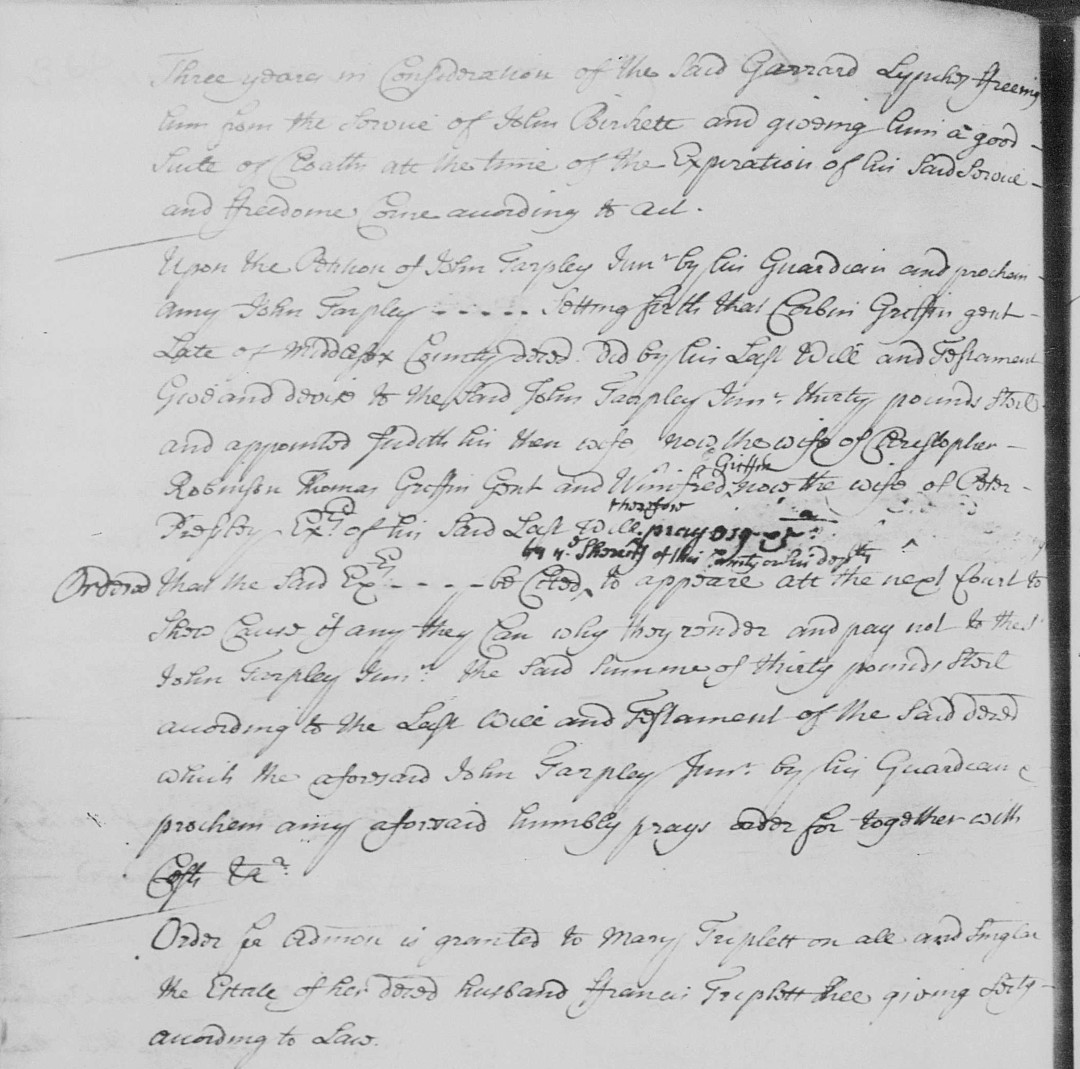 Three years in Consideration of the Said Garrard Lynches ffreeing
him from the Service of John Birkett and giveing him a good
Suite of Cloaths att the time of the Expiration of his Said Service
and ffreedome Corne acording to act.
Upon the Petition of John Tarpley Junr by his Guardian and prochein
amy John Tarpley - - - - - Setting forth that Corbin Griffin gent
Late of Middlesex County deced did by his Last Will and Testament
Give and devise to the Said John Tarpley Junr thirty pounds Sterl
and appointed Judith his then wife now the wife of Christopher
Robinson Thomas Griffin Gent and Winifred Griffin now the wife of Peter
Presley Exrs of his Said Last Will therefore
by ye Sheriff of this County or his depty
Ordered that the Said Exrs - - - - be Cited to appeare att the next Court to
Shew Cause if any they Can why they render and pay not to the sd
John Tarpley Junr the Said Summe of thirty pounds Sterl
acording to the Last Will and Testament of the Said deced
which the aforesaid John Tarpley Junr by his Guardian &
prochein amy aforesaid humbly prays order for together with
Costs &ca
Order for Admon is granted to Mary Triplett on all and Singlar
the Estate of her deced husband ffrancis Triplett Shee giveing Secty
acording to Law.